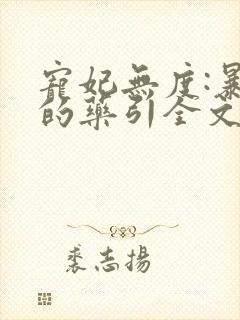 寵妃無度:暴
的藥引全文
裘志揚